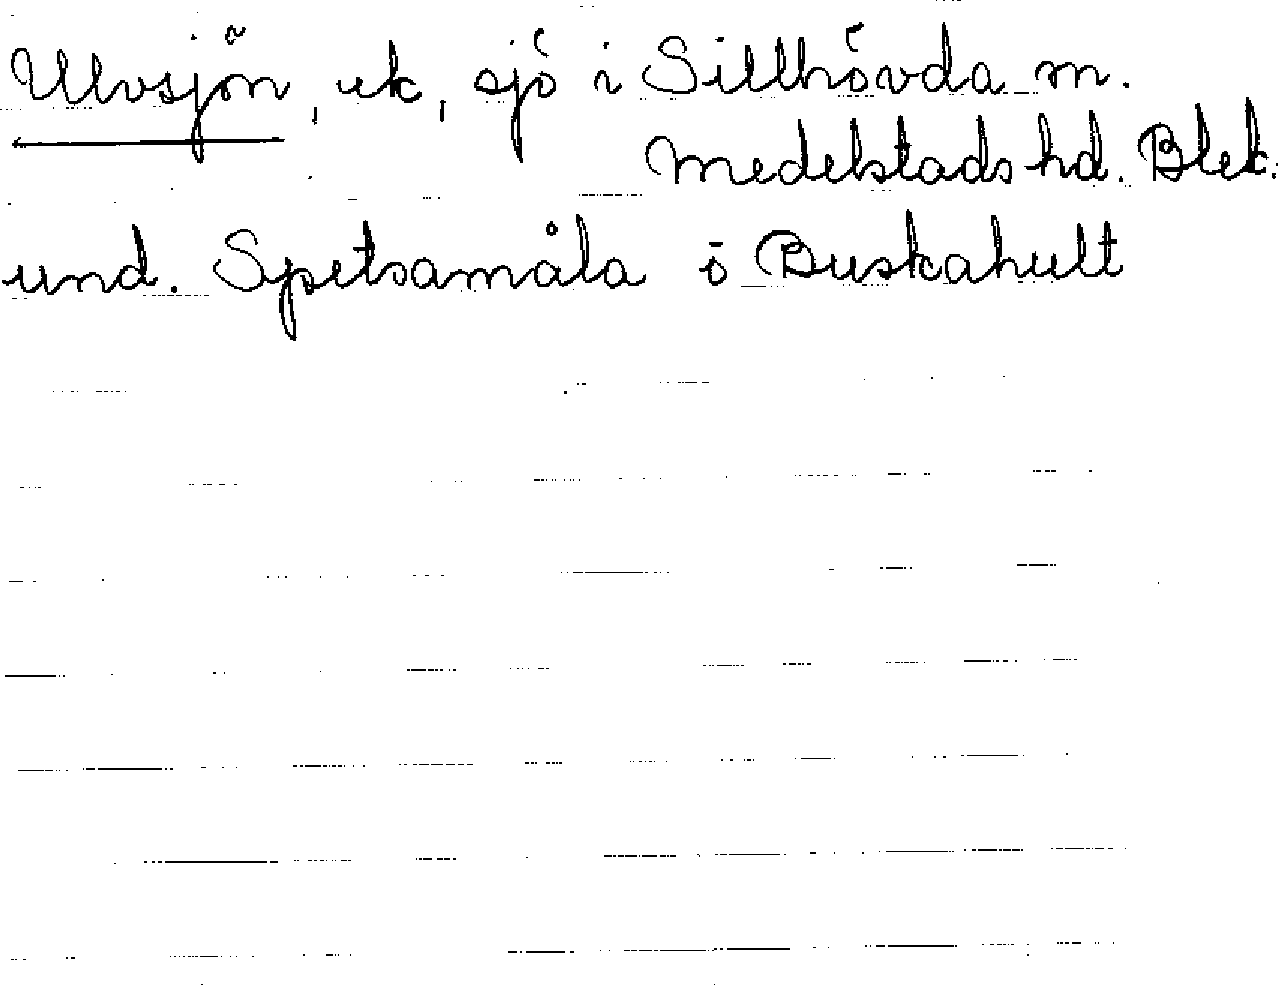 Ulvsjön, ek, sjö i Sillhövda sn.
Medelstads hd. Blek.
und. Spetsamåla o Buskahult